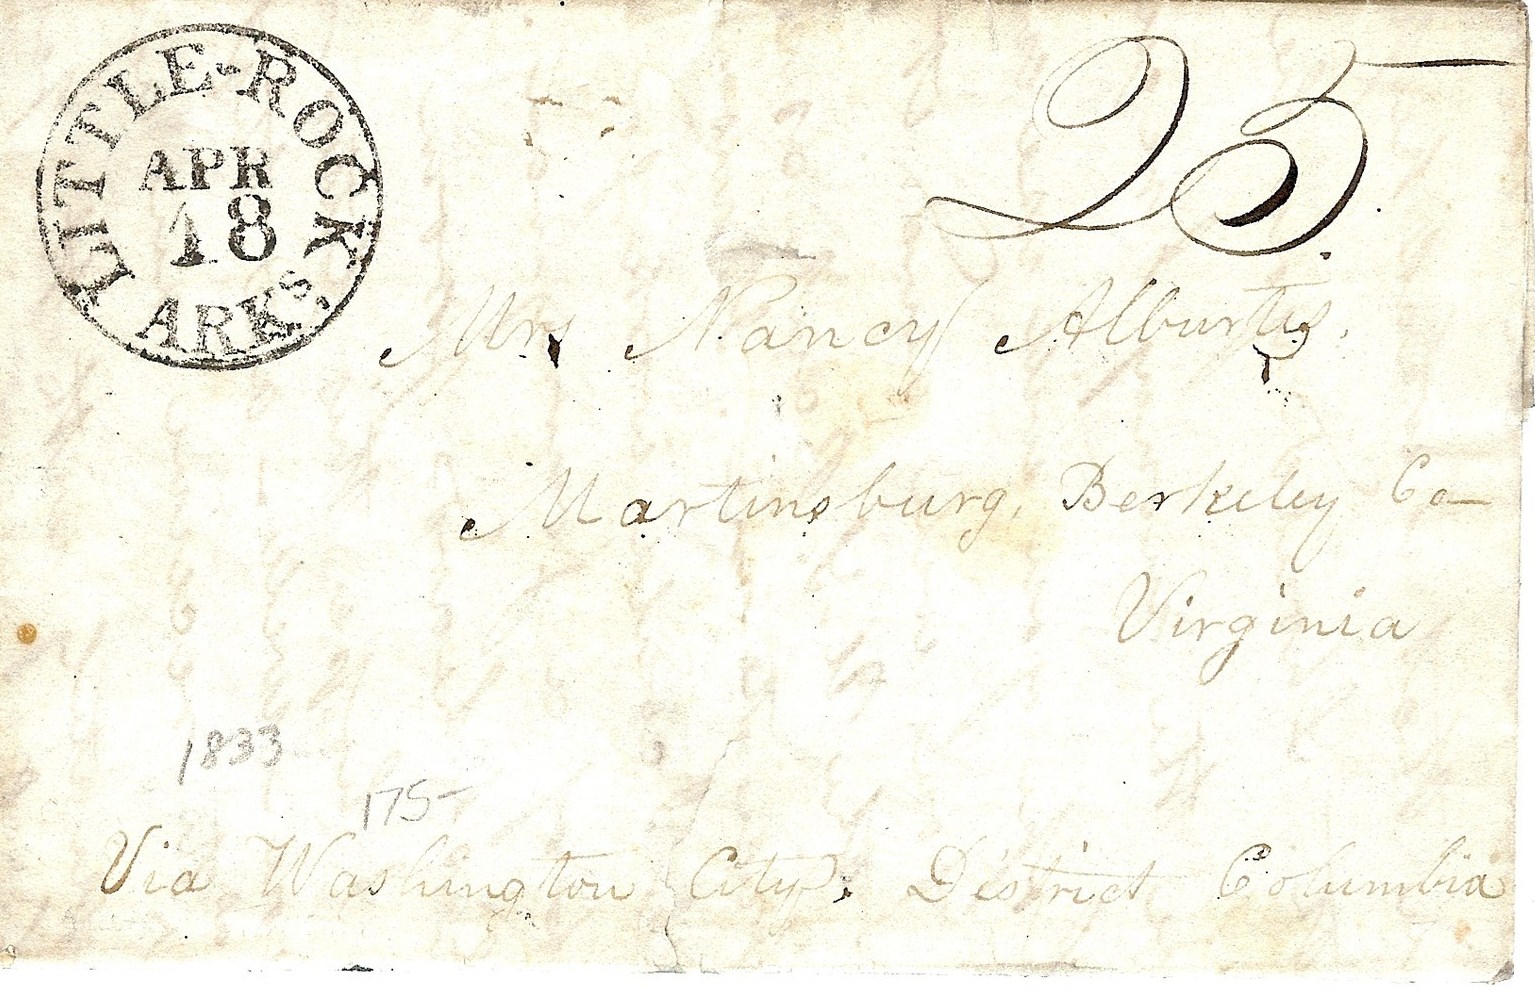 LITTLE-ROCK
APR
18
ARKs.
25
Mrs Nancy Alburtis,
Martinsburg, Berkeley Co
Virginia
1833
175-
Via Washington City, District Columbia